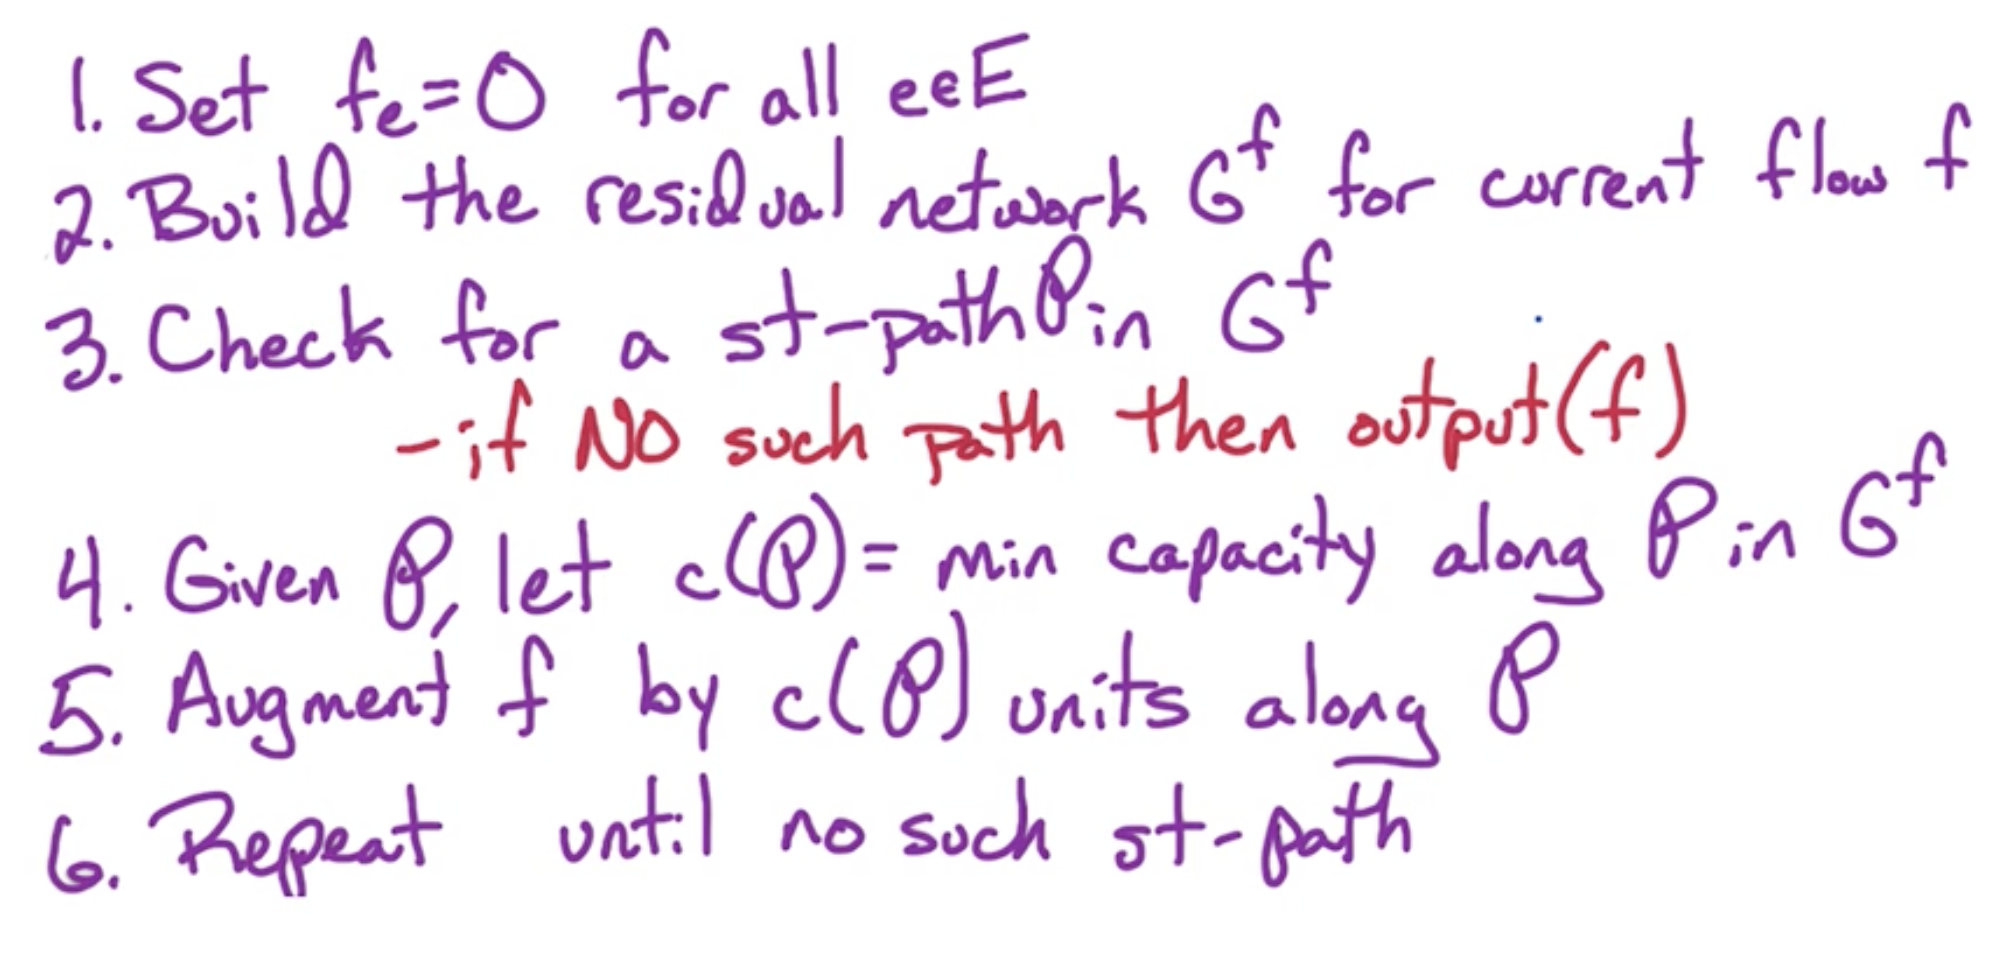 1. Set fₑ=0 for all e∈E
2. Build the residual network Gᶠ for current flow f
3. Check for a st-path P in Gᶠ
- if NO such path then output(f)
4. Given P, let c(P) = min capacity along P in Gᶠ
5. Augment f by c(P) units along P
6. Repeat until no such st-path